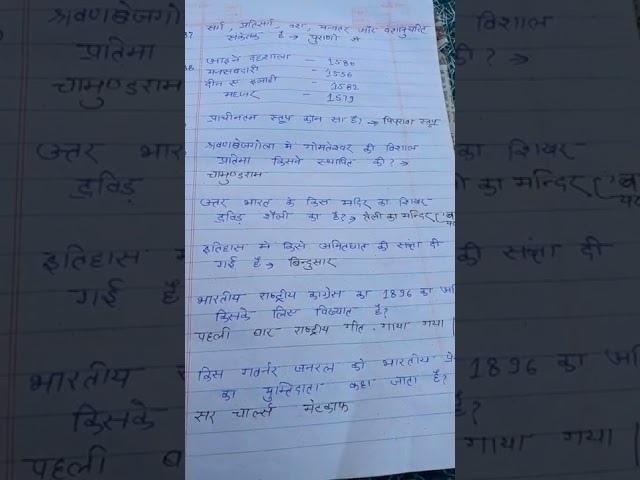 सर्ग, प्रतिसर्ग, वंश, मन्वंतर और वंशानुचरित
संकेतक है → पुराणों से
आइने दहशाला - 1580
मनसबदारी - 1556
दीन ए इलाही - 1582
महजर - 1579
प्राचीनतम स्तूप कौन सा है? → पिपरावा स्तूप
श्रवणबेलगोला में गोमतेश्वर की विशाल
प्रतिमा किसने स्थापित की? →
चामुण्डराम
उत्तर भारत के किस मंदिर का शिखर
द्रविड़ शैली का है? → तेली का मन्दिर
इतिहास में किसे अमित्रघात की संज्ञा दी
गई है → बिन्दुसार
भारतीय राष्ट्रीय कांग्रेस का 1896 का
किसके लिए विख्यात है?
पहली बार राष्ट्रीय गीत गाया गया
किस गवर्नर जनरल को भारतीय
का मुक्तिदाता कहा जाता है?
सर चार्ल्स मेटकाफ